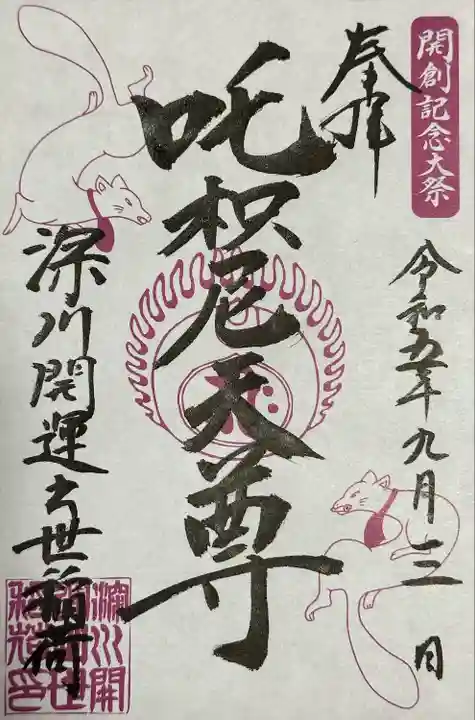 開創記念大祭
奉拝
令和五年九月二三日
吒枳尼天尊
深川開運出世稲荷